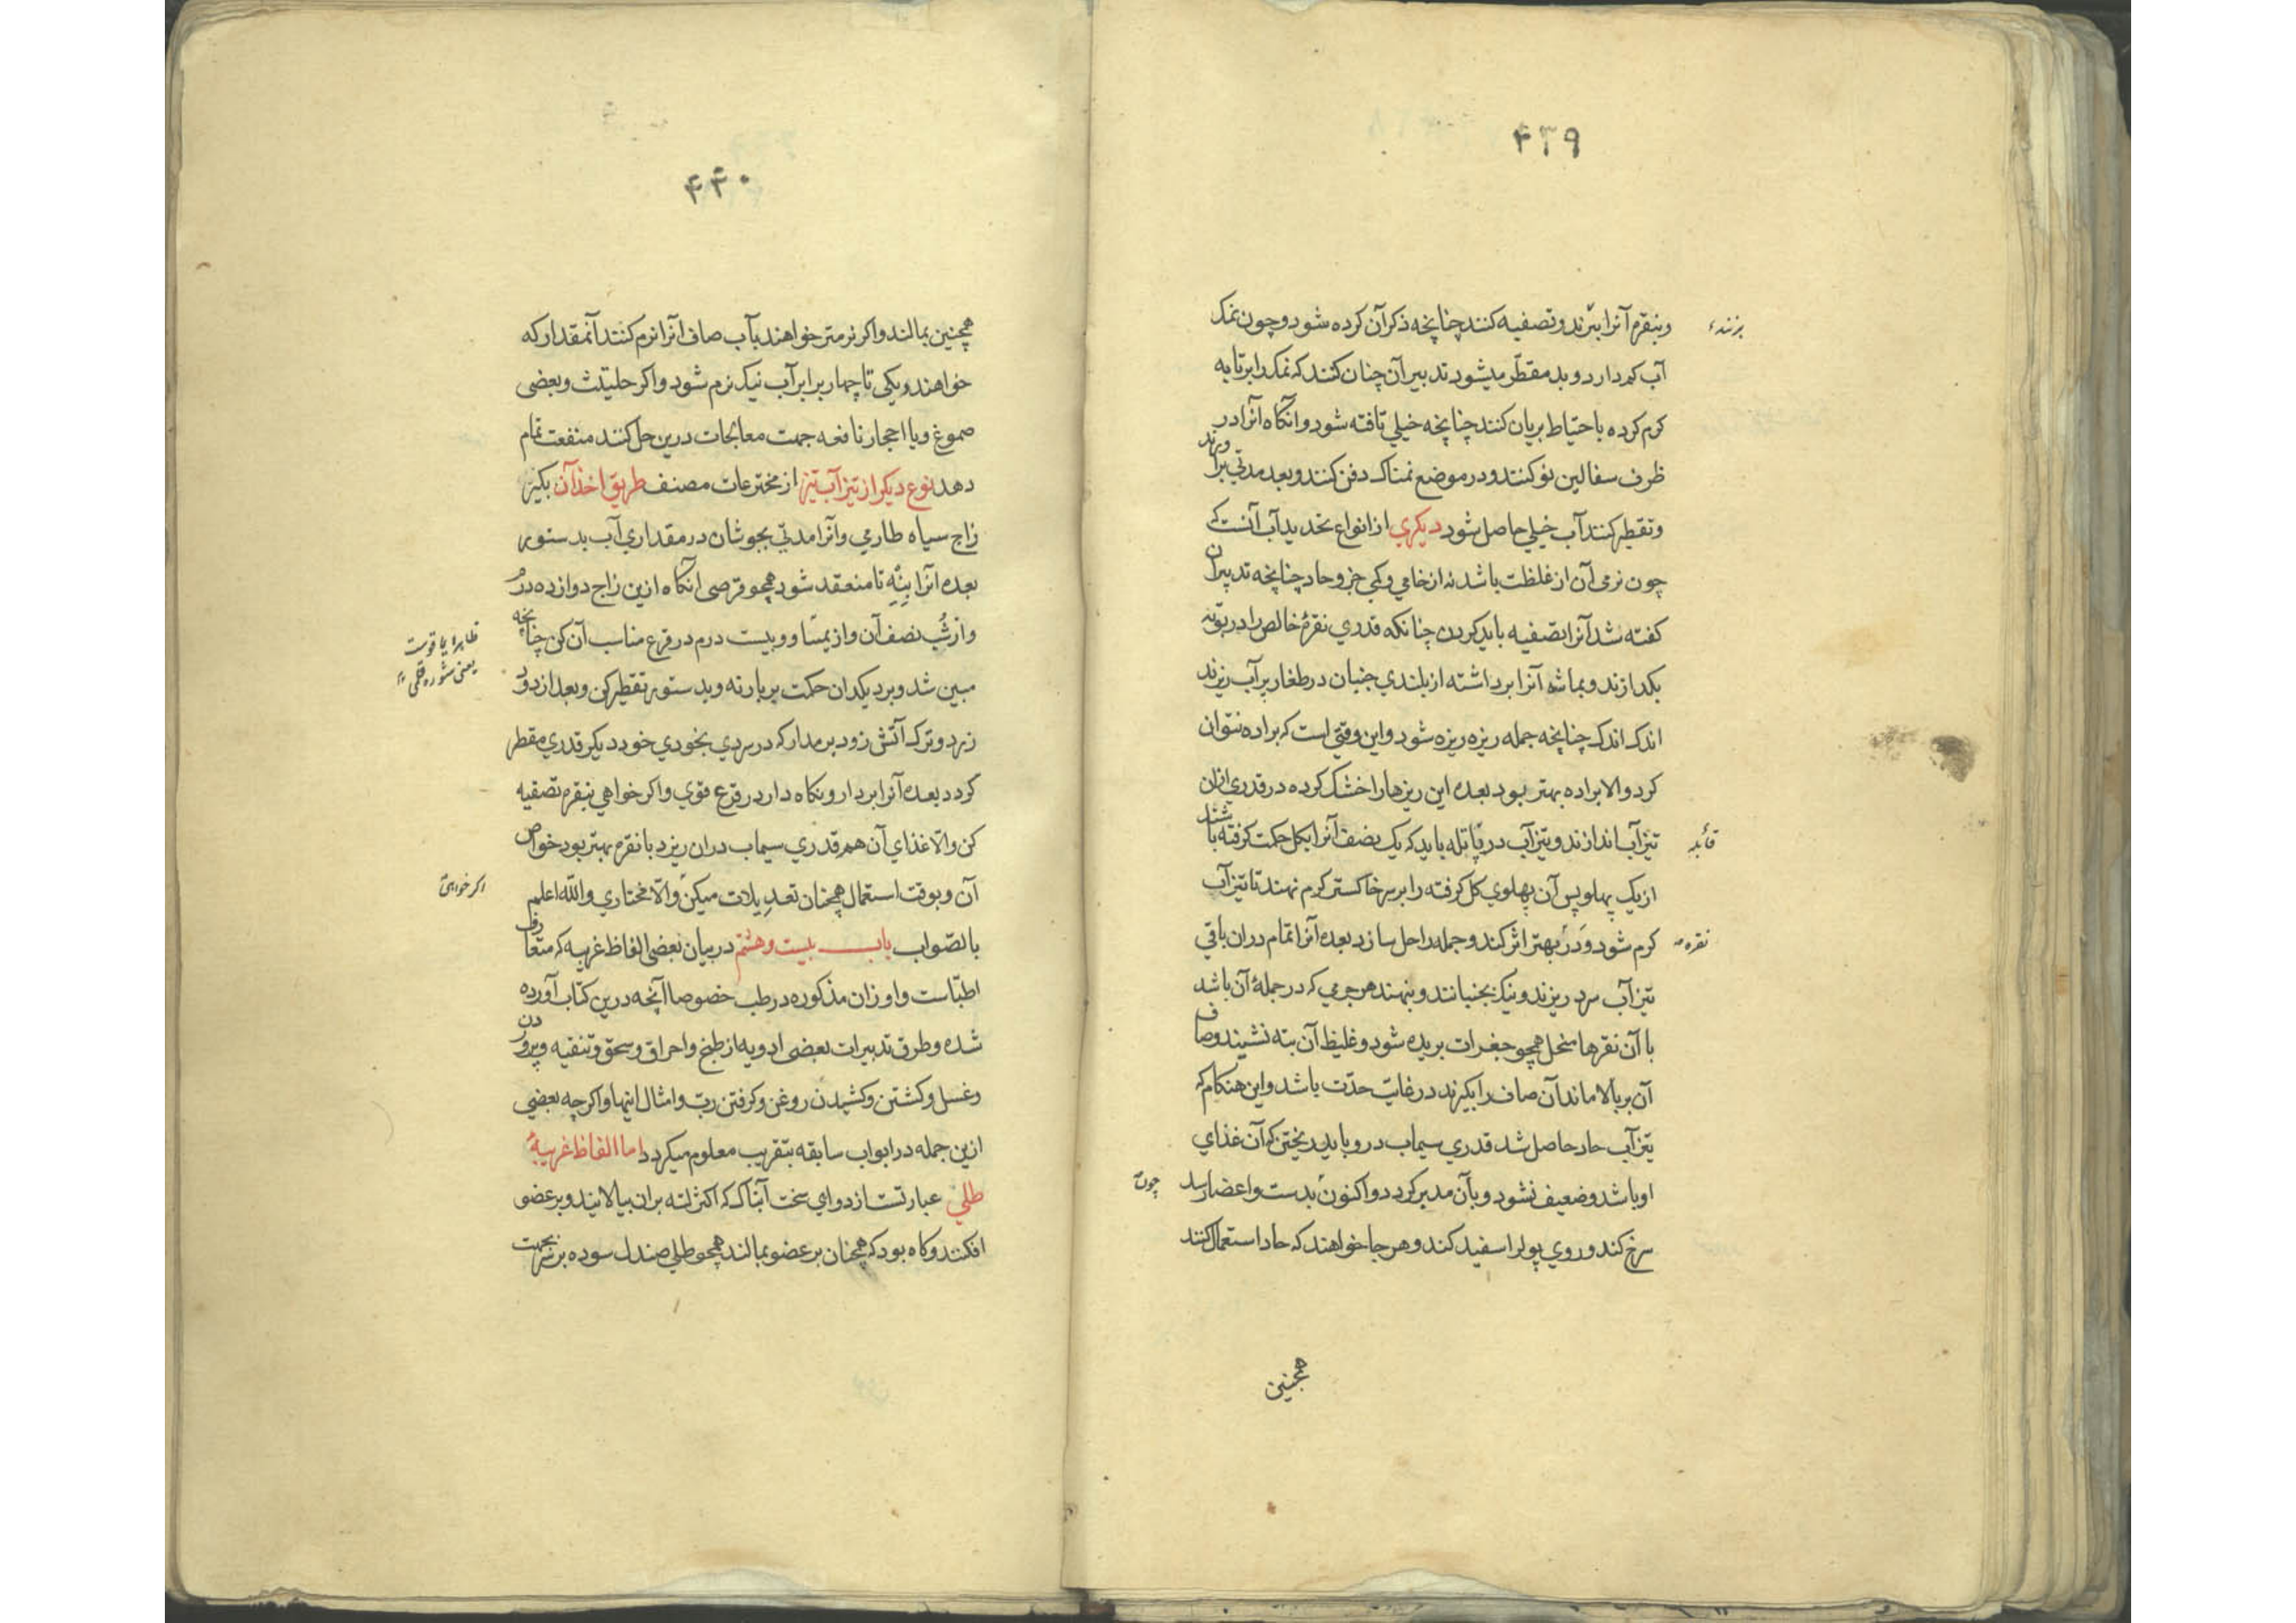 ۴۳۹
وبنقرم آنرا ببرند وتصفیه کنند چنانچه ذکر آن کرده شود وچون نمک
آب کم دارد وبد مقطر میشود تدبیر آن چنان کنند که نمک را برتابه
کرم کرده باحتیاط بریان کنند چنانچه خیلی تافته شود وانکاه انرا در
ظرف سفالین نو کنند ودر موضع نمناک دفن کنند وبعد مدتی برآورند
وتقطیر کنند آب خیلی حاصل شود دیکري از انواع تحدید آب آنست که
چون نرمی آن از غلظت باشد نه از خامی وکمی جزو حاد چنانچه تدبیر آن
کفته شد آنرا تصفیه باید کردن چنانکه قدري نقرهٔ خالص را در بوته
بکدازند وبماشه آنرا برداشته از بلندي جنبان در طغار پر آب ریزند
اندک اندک چنانچه جمله ریزه ریزه شود واین وقتی است که براده نتوان
کرد والا براده بهتر بود بعده این ریزها را خشک کرده در قدري ازان
تیزآب اندازند وتیزآب در پاتله باید که یک نصف آنرا بکل حکمت کرفته باشند
از یک پهلو پس آن پهلوي کل کرفته را بر سر خاکستر کرم نهند تا تیزآب
کرم شود ودر بهتر اثر کند وجمله را حل سازد بعده آنرا تمام دران باقی
تیزآب سرد ریزند ونیک بجنبانند وبنهند هر جرمی که در جملهٔ آن باشد
با آن نقرها منحل همچو جغرات بریده شود وغلیظ آن بته نشیند وصاف
آن بر بالا ماند آن صاف را بکیرند در غایت حدت باشد واین هنکام که
تیزآب حاد حاصل شد قدري سیماب درو باید ریختن که آن غذاي
او باشد وضعیف نشود وبآن مدبر کردد واکنون بدست واعضا رسد
سرخ کند وروي پول را سفید کند وهر جا خواهند که حاد استعمال کنند
برنده
نقره
چون
همچنین
۴۴۰
همچنین بمالند واکر نرمتر خواهند بآب صاف انرا نرم کنند آنمقدار که
خواهند ویکی تا چهار برابر آب نیک نرم شود واکر حلیتیت وبعضی
صموغ ویا احجار نافعه جهت معالجات درین حل کنند منفعت تمام
دهد نوع دیکر از تیز آب تیز از مخترعات مصنف طریق اخذ آن بکیر
زاج سیاه طارمی وآنرا مدتی بجوشان در مقداري آب بدستور
بعده آنرا بنه تا منعقد شود همچو قرصی انکاه ازین زاج دوازده درم
واز شب نصف آن واز یمسا وو بیست درم در قرع مناسب آن کن چنانچه
مبین شد وبر دیکدان حکمت بر بار نه وبدستور تقطیر کن وبعد از دود
زرد وترک آتش زود بر مدار که در سردي بخودي خود دیکر قدري مقطر
کردد بعده آنرا بردار ونکاه دار در قرع قوي واکر خواهی بنقرم تصفیه
کن والا غذاي آن هم قدري سیماب دران ریزد با نقره بهتر بود خواص
آن وبوقت استعمال همچنان تعدیلات میکن والا مختاري والله اعلم
بالصواب باب بیست وهشتم در بیان بعضی الفاظ غریبه که متعارف
اطباست واوزان مذکوره در طب خصوصا آنچه درین کتاب آورده
شده وطرق تدبیرات بعضی ادویه از طبخ واحراق وسحق وتنقیه وپروردن
وغسل وکشتن وکشیدن روغن وکرفتن رب وامثال اینها واکرچه بعضی
ازین جمله در ابواب سابقه بتقریب معلوم میکردد اما الفاظ غریبه
طلي عبارتست از دواي سخت آبناک که اکثر لته بران بیالایند وبر عضو
افکنند وکاه بود که همچنان بر عضو بمالند همچو طلي صندل سوده بر سر بجهت
ظاهرا یاقوت
یعنی شوره قلمی
اکر خواهی